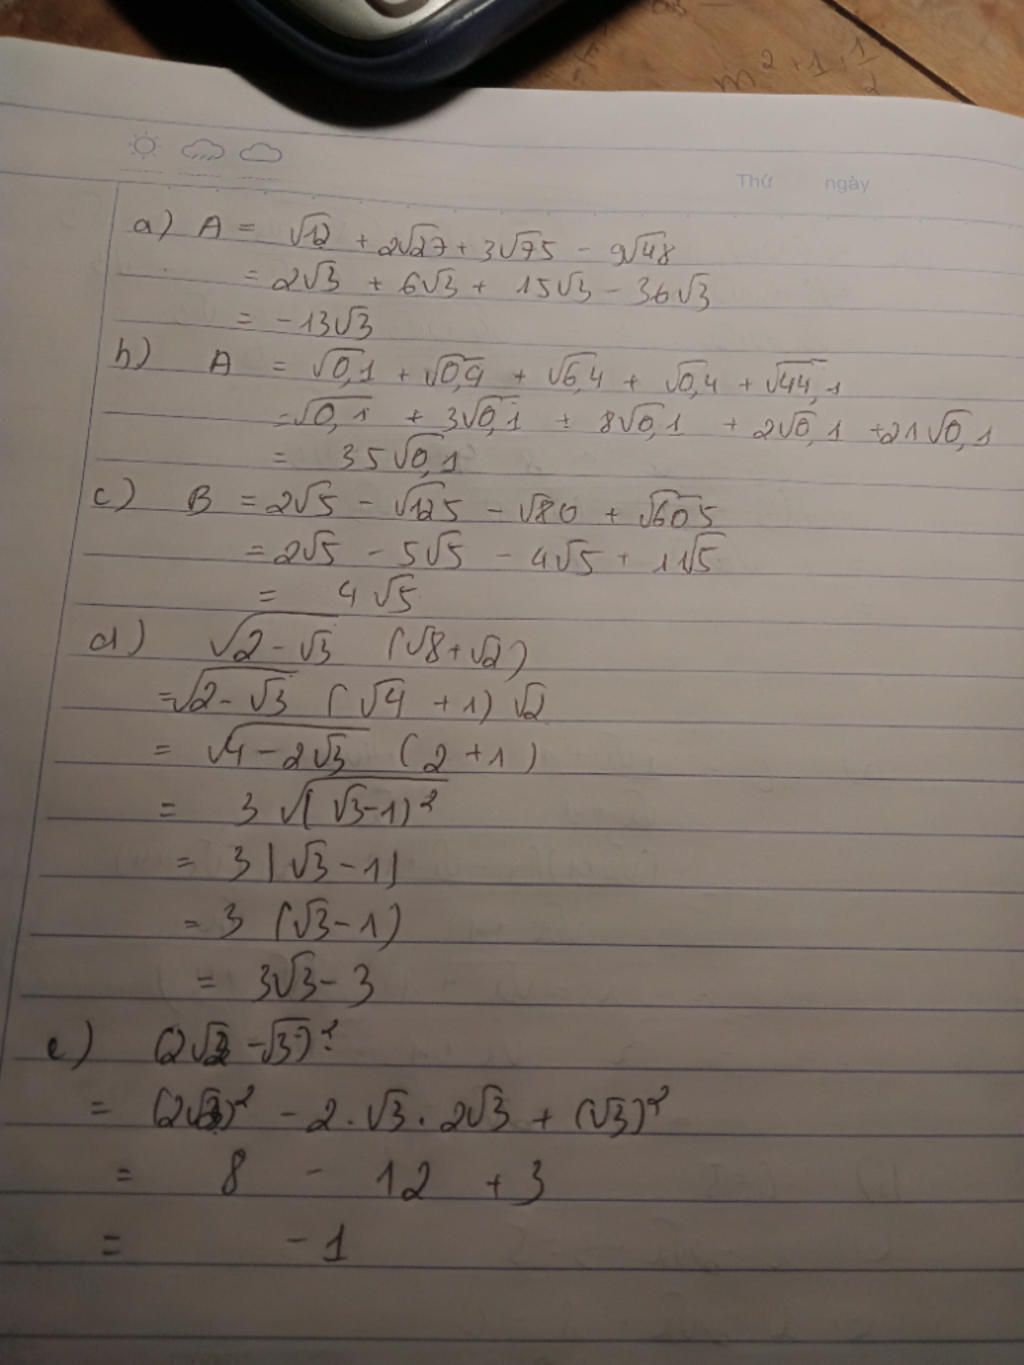 m² + 1 + 1/2
Thứ ngày
a) A = √12 + 2√27 + 3√75 - 9√48
= 2√3 + 6√3 + 15√3 - 36√3
= -13√3
b) A = √0,1 + √0,9 + √6,4 + √0,4 + √44,1
= √0,1 + 3√0,1 + 8√0,1 + 2√0,1 + 21√0,1
= 35√0,1
c) B = 2√5 - √125 - √80 + √605
= 2√5 - 5√5 - 4√5 + 11√5
= 4√5
d) √(2 - √3) (√8 + √2)
= √(2 - √3) (√4 + 1) √2
= √(4 - 2√3) (2 + 1)
= 3 √((√3 - 1)²)
= 3 |√3 - 1|
= 3 (√3 - 1)
= 3√3 - 3
e) (2√2 - √3)²
= (2√2)² - 2 . √3 . 2√3 + (√3)²
= 8 - 12 + 3
= - 1